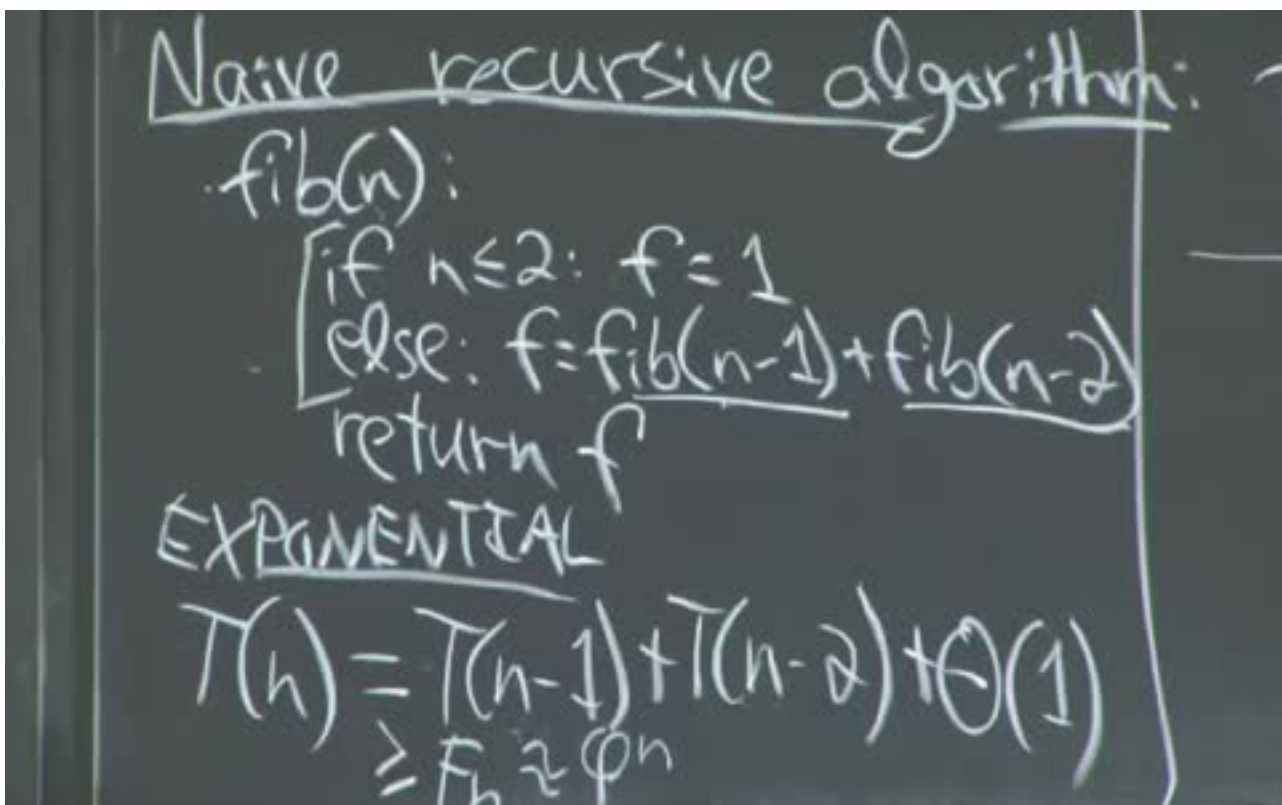 Naive recursive algorithm:
fib(n):
if n≤2: f=1
else: f=fib(n-1)+fib(n-2)
return f
EXPONENTIAL
T(n)=T(n-1)+T(n-2)+Θ(1)
≥Fn≈φn